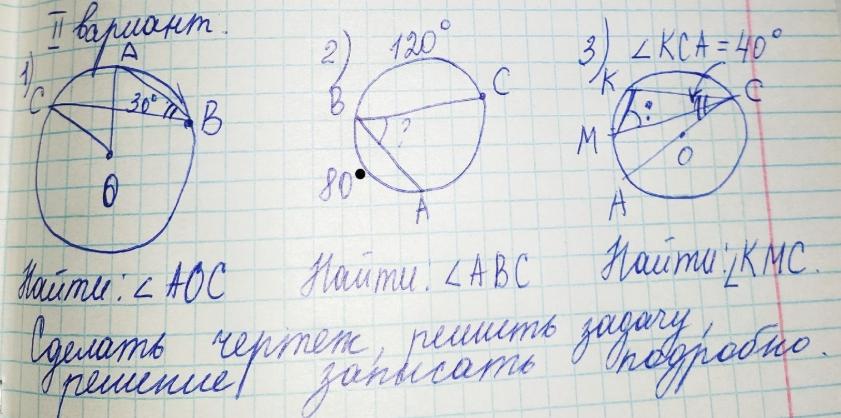 II вариант.
1)
A
C
30°
B
O
Найти: ∠AOC
2) 120°
B
C
?
80°
A
Найти: ∠ABC
3) ∠KCA = 40°
K
C
M
?
O
A
Найти: ∠KMC.
Сделать чертеж, решить задачу,
решение записать подробно.